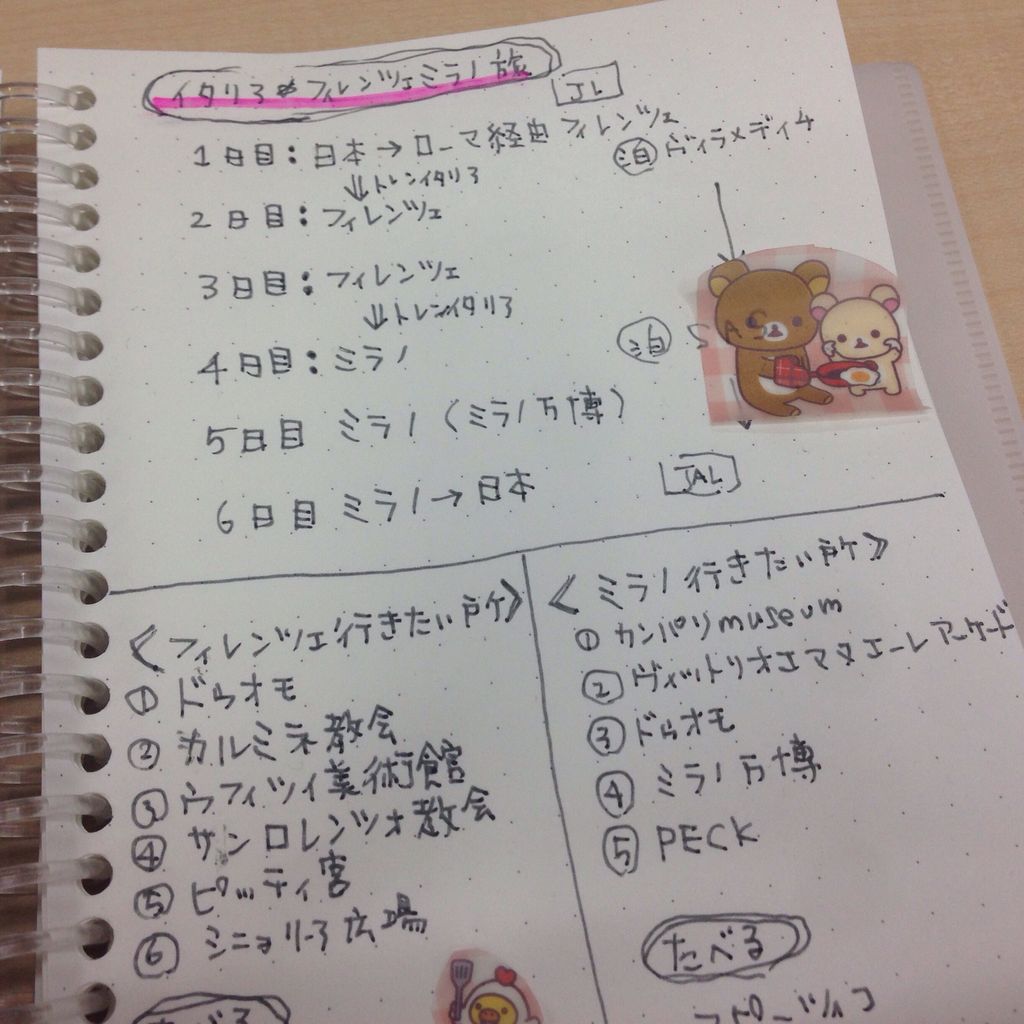 イタリア フィレンツェミラノ旅
JL
1日目:日本→ローマ経由フィレンツェ
泊 ヴィラメディチ
⇓トレンイタリア
2日目:フィレンツェ
3日目:フィレンツェ
⇓トレンイタリア
4日目:ミラノ
泊
5日目 ミラノ(ミラノ万博)
6日目 ミラノ→日本
JAL
《フィレンツェ行きたい所》
① ドゥオモ
② カルミネ教会
③ ウフィツィ美術館
④ サンロレンツォ教会
⑤ ピッティ宮
⑥ シニョリーア広場
たべる
《ミラノ行きたい所》
① カンパリmuseum
② ヴィットリオエマヌエーレアーケード
③ ドゥオモ
④ ミラノ万博
⑤ PECK
たべる